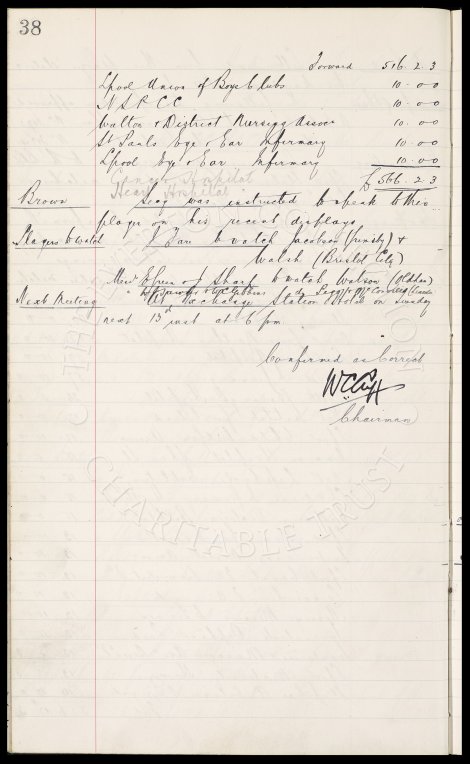 38
Forward 516. 2. 3
Lpool Union of Boys Clubs 10. 0 0
N S P C C 10. 0 0
Walton & District Nursing Assoc. 10. 0 0
St Pauls Eye & Ear Infirmary 10. 0 0
Lpool Eye & Ear Infirmary 10. 0 0
Cancer Hospital
Heart Hospital £ 566. 2. 3
Brown Secy was instructed to speak to this
player on his recent displays
Players to watch J Fare to watch Jacobson (Grimsby) &
Walsh (Bristol City)
Mess Green & J Sharp to watch Watson (Oldham)
Next Meeting Exchange Station Hotel on Sunday
next 13th inst at 6 pm.
Confirmed as Correct
W C Cuff
Chairman
CHARITABLE TRUST